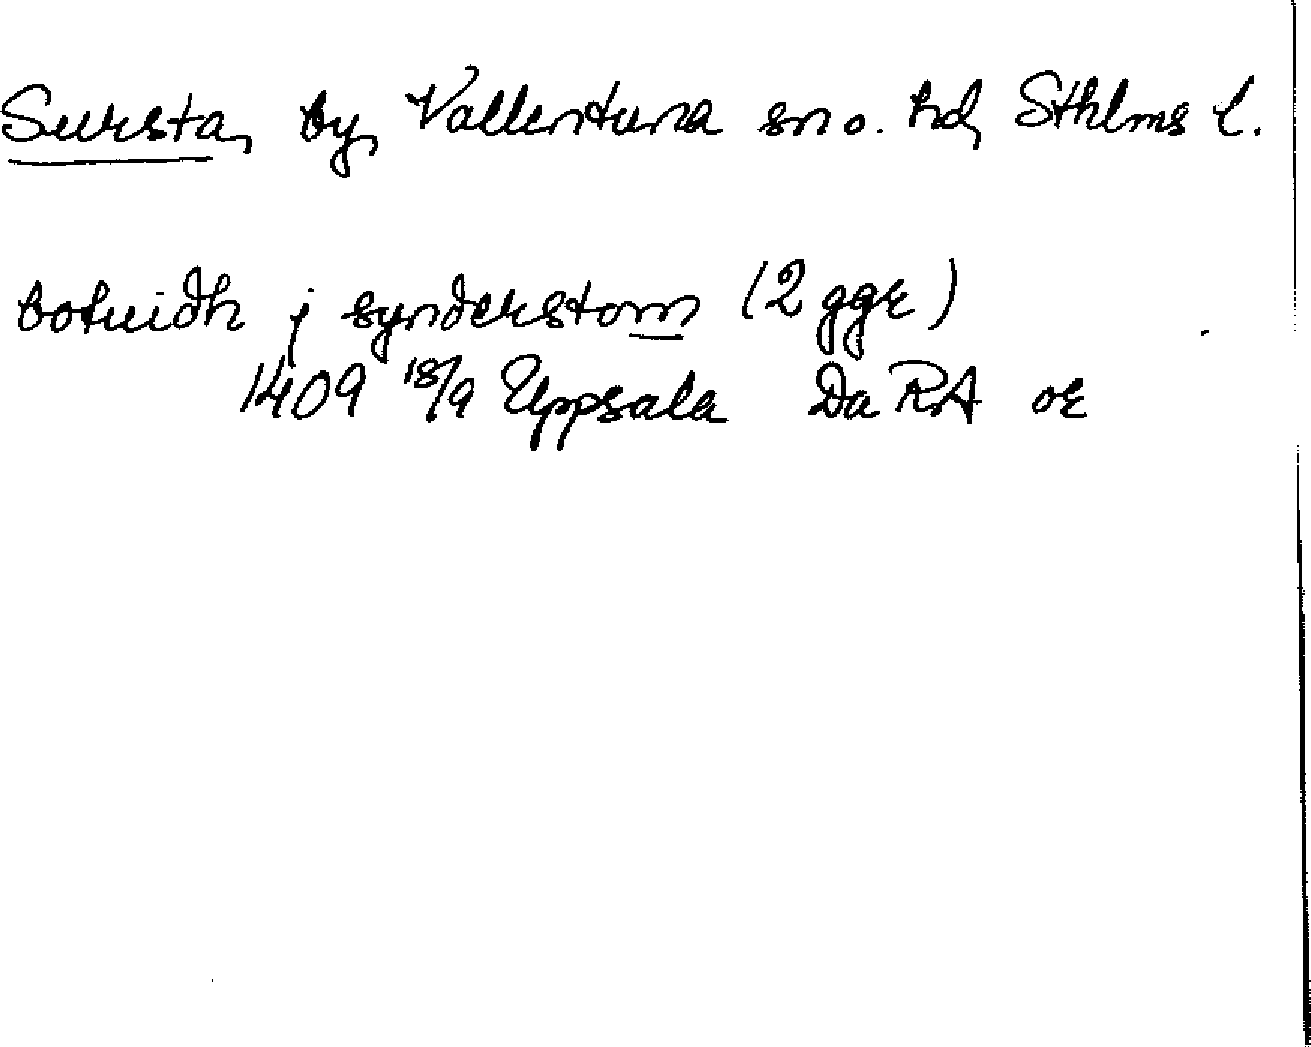 Sursta, by, Vallentuna sn o. hd, Sthlms l.
botuidh j synderstom (2 ggr)
1409 18/9 Uppsala Da RA or